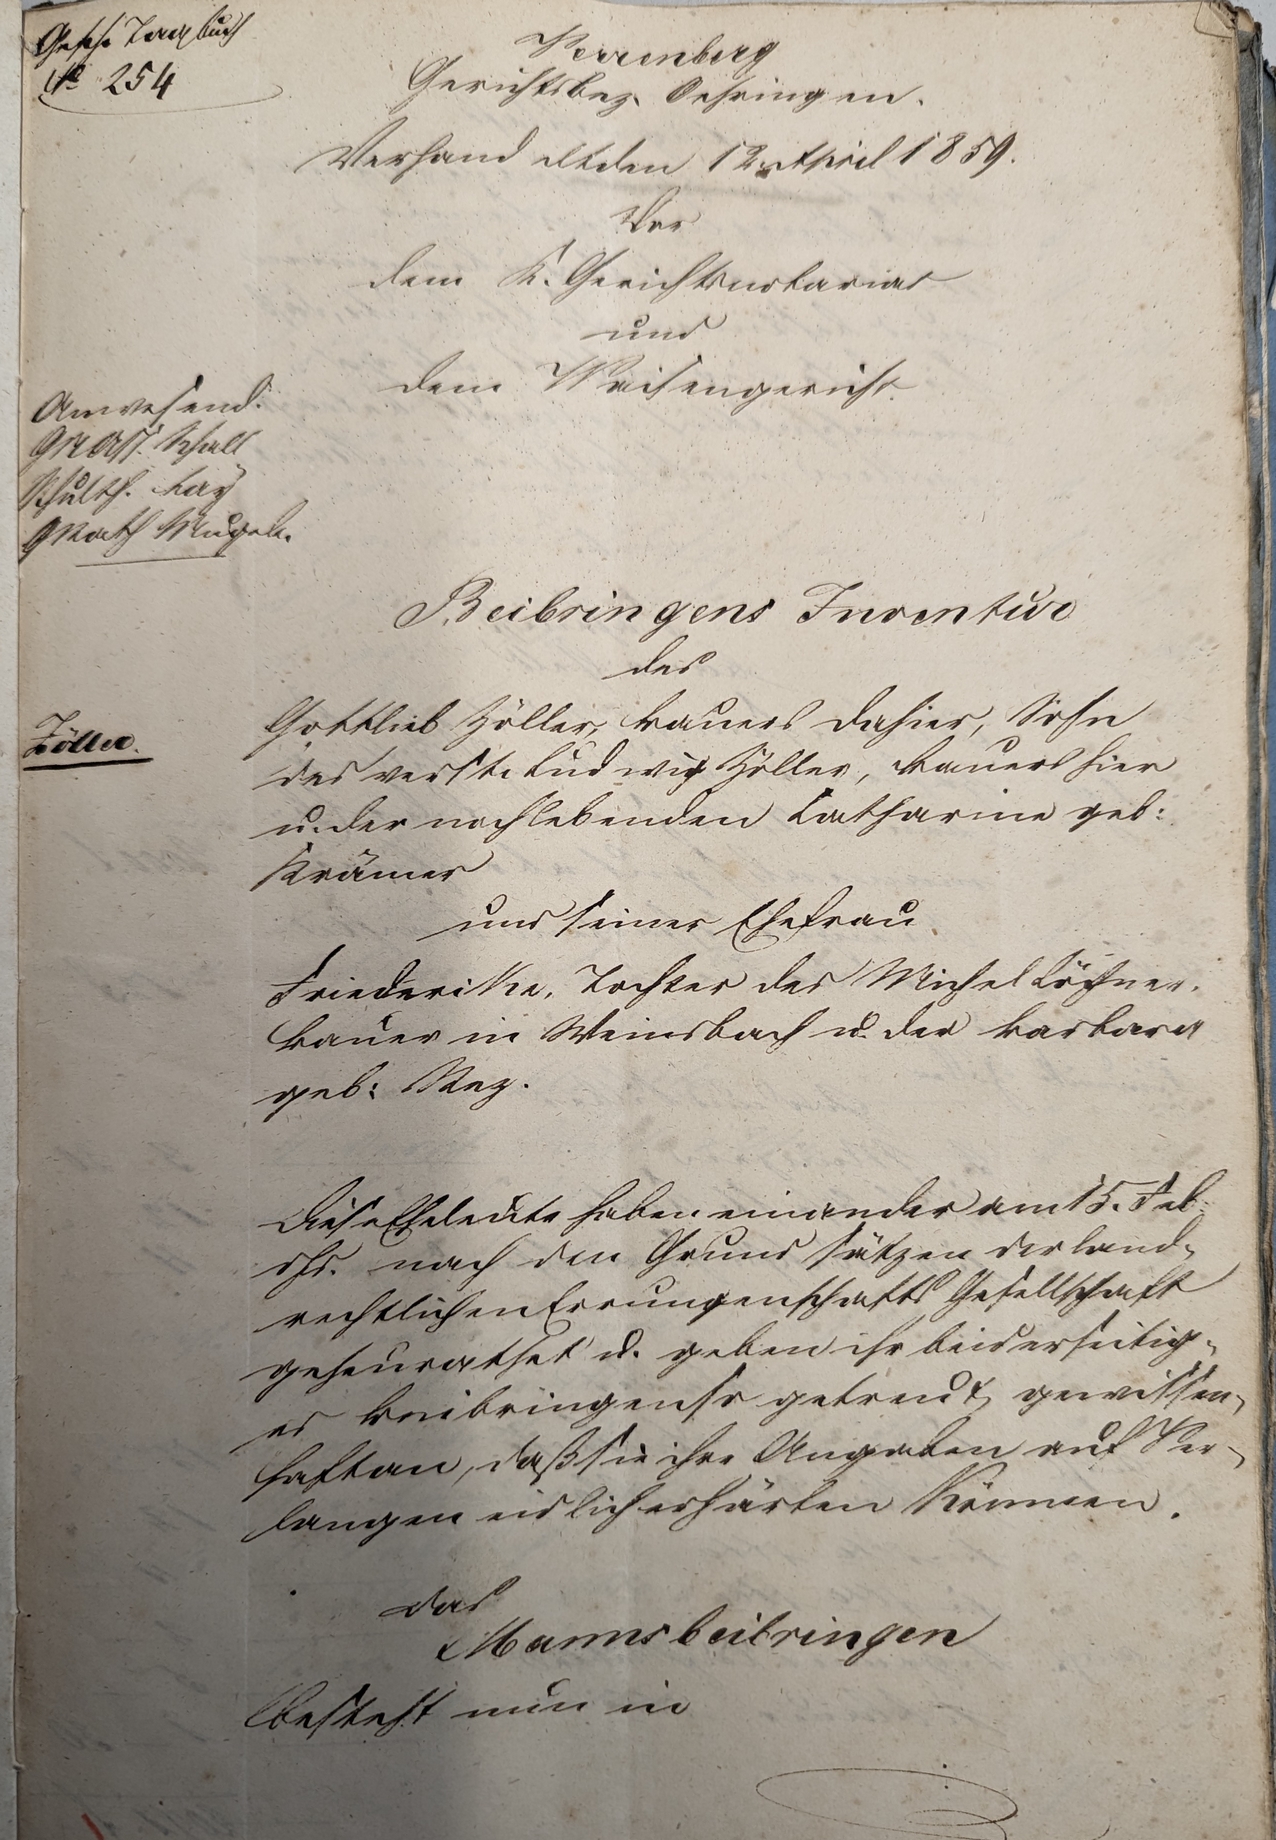 Geschf. Tagbuch
N° 254
Verrenberg
Gerichtsbez. Oehringen.
Verhandelt den 12. April 1859.
Vor
dem K. Gerichtsnotariat
und
dem Waisengericht.
Anwesend:
Schulth. Kay
GRath Mugele.
Beibringens Inventur
des
Zöller.
Gottlieb Zöller, Bauers dahier, Sohn
des verst. Ludwig Zöller, Bauers hier
u. der noch lebenden Catharine geb:
Krämer
und seiner Ehefrau
Friederike, Tochter des Michel Löchner,
Bauer in Weinsbach u. der Barbara
geb: Mez.
Diese Eheleute haben einander am 15. Feb.
dJs. nach den Grundsätzen der land-
rechtlichen Errungenschafts Gesellschaft
geheurathet u. geben ihr beiderseitig-
es Beibringen so getreu u. gewissen-
haft an, daß sie ihre Angaben auf Ver-
langen eidlich erhärten können.
Das
Mannsbeibringen
besteht nun in